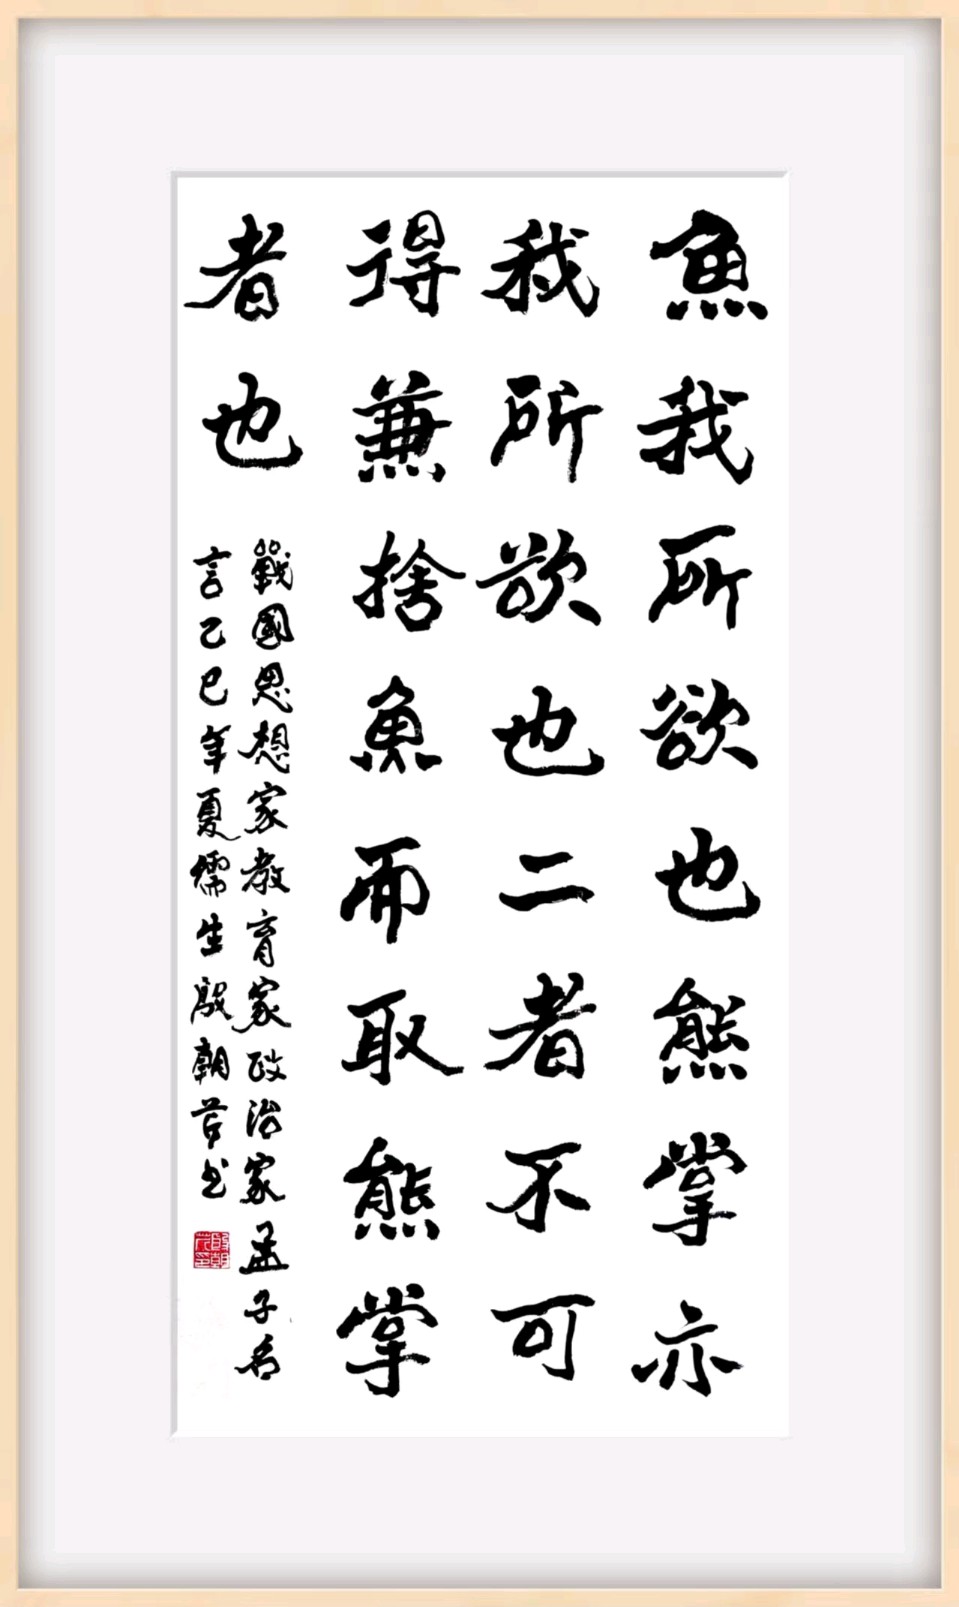 魚我所欲也熊掌亦
我所欲也二者不可
得兼捨魚而取熊掌
者也
戰國思想家教育家政治家孟子名
言乙巳年夏儒生殷朝芹书